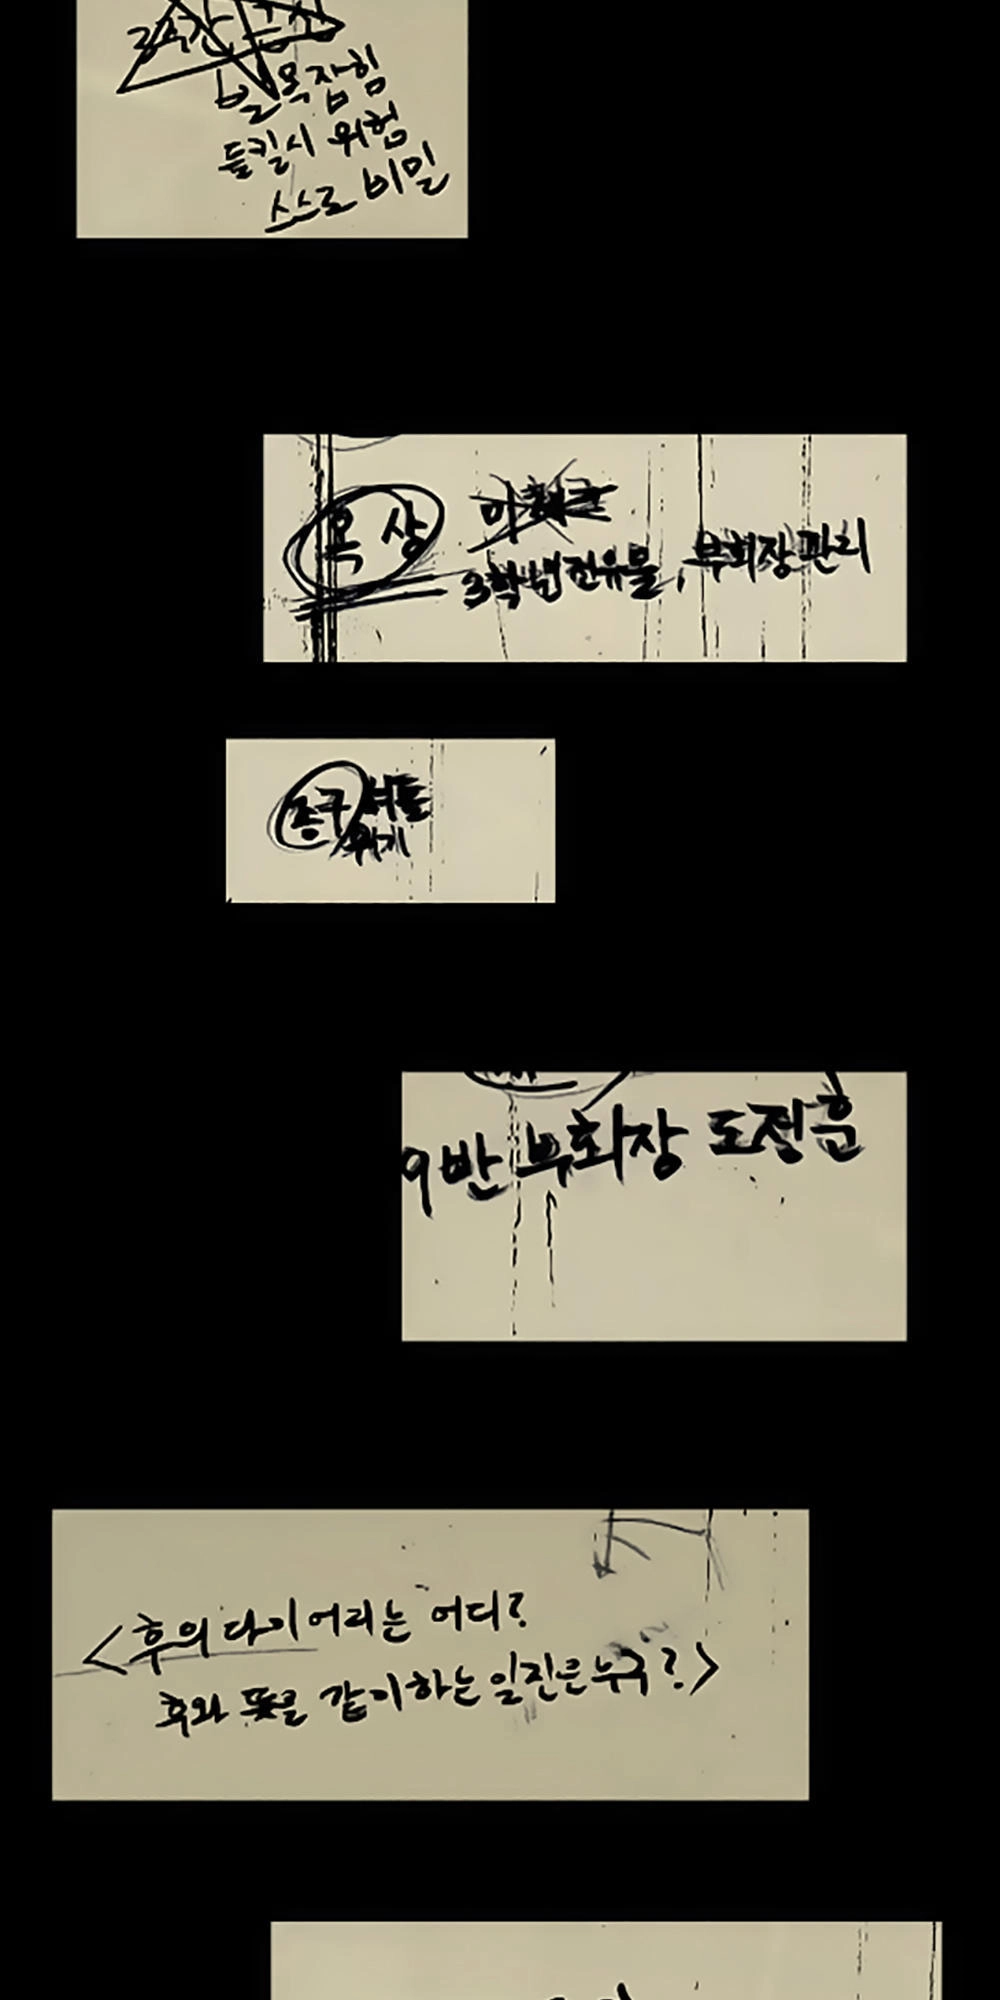 빌목잡힘
들킬시 위험
스스로 비밀
옥상
3학년전유물, 부회장관리
종구 셔틀
9반 부회장 도정훈
<후의 다이어리는 어디?
후와 뜻을 같이하는 일진은 누구?>